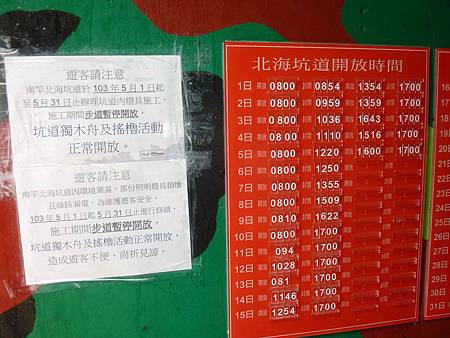 遊客請注意
南竿北海坑道於 103 年 5 月 1 日起
至 5 月 31 日止辦理坑道內燈具施工，
施工期間步道暫停開放，
坑道獨木舟及搖櫓活動
正常開放。
遊客請注意
南竿北海坑道因環境潮濕，部份照明燈具損壞
且線路漏電，為維護遊客安全，
103 年 5 月 1 日起 5 月 31 日止進行修繕，
施工期間步道暫停開放
坑道獨木舟及搖櫓活動正常開放，
造成遊客不便，尚祈見諒。
北海坑道開放時間
1日 開放 0800 封閉 0854 開放 1354 封閉 1700
2日 開放 0800 封閉 0959 開放 1359 封閉 1700
3日 開放 0800 封閉 1036 開放 1643 封閉 1700
4日 開放 0800 封閉 1110 開放 1516 封閉 1700
5日 開放 0800 封閉 1220 開放 1600 封閉 1700
6日 開放 0800 封閉 1250
7日 開放 0800 封閉 1355
8日 開放 0800 封閉 1509
9日 開放 0810 封閉 1622
10日 開放 0800 封閉 1700
11日 開放 094 封閉 1700
12日 開放 1028 封閉 1700
13日 開放 081 封閉 1700
14日 開放 1146 封閉 1700
15日 開放 1254 封閉 1700
16
17
18
19
20
21
22
23
24
25日
26日
27日
28日
29日
30日
31日